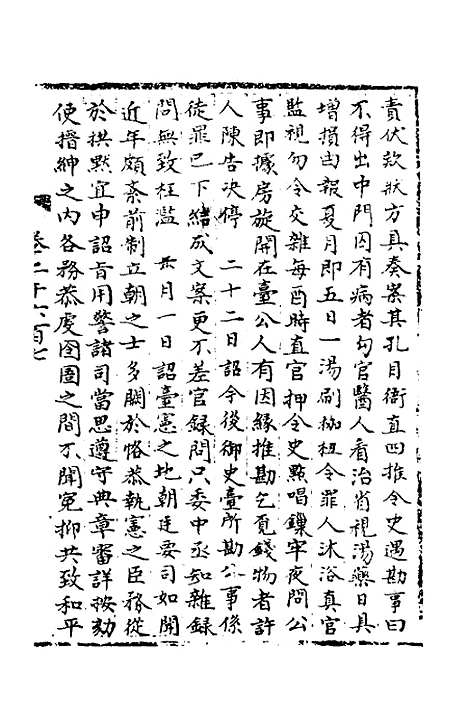 責伏欵狀方具奏案其孔目衙直四推令史遇勘事日
不得出中門囚有病者句官醫人看治省視湯藥日具
增損由報夏月即五日一湯刷枷杻令罪人沐浴真官
監視勿令交雜每酉時直官押令史㸃唱鏁牢夜問公
事即據房旋開在臺公人有因緣推勘乞覓錢物者許
人陳告决停 二十二日詔令後御史臺所勘公事係
徒罪已下結成文案更不差官録問只委中丞知雜録
問無致枉濫 月一日詔臺憲之地朝廷委司如聞
近年頗紊前制立朝之士多關於恪恭執憲之臣務從
於拱默宜申詔㫖用警諸司當思遵守典章審詳按劾
使搢紳之内各務恭虔囹圄之間不聞寃抑共致和平
卷二千六百七